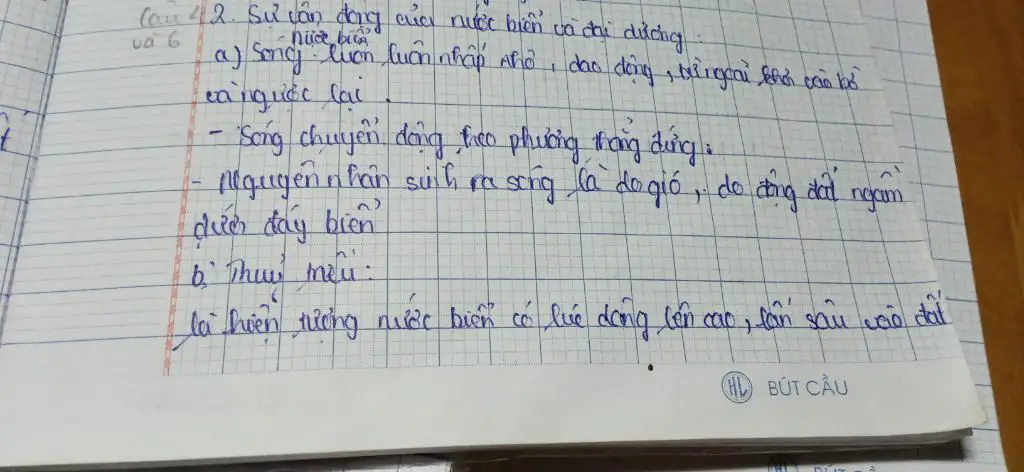 Câu 4
và 6
2. Sự vận động của nước biển và đại dương.
nước biển
a) Sóng: luôn luôn nhấp nhô, dao động, từ ngoài vào bờ
và ngược lại.
- Sóng chuyển động theo phương thẳng đứng.
- Nguyên nhân sinh ra sóng là do gió, do động đất ngầm
dưới đáy biển
b. Thuỷ triều:
là hiện tượng nước biển có lúc dâng lên cao, lấn sâu vào đất
HL BÚT CẦU